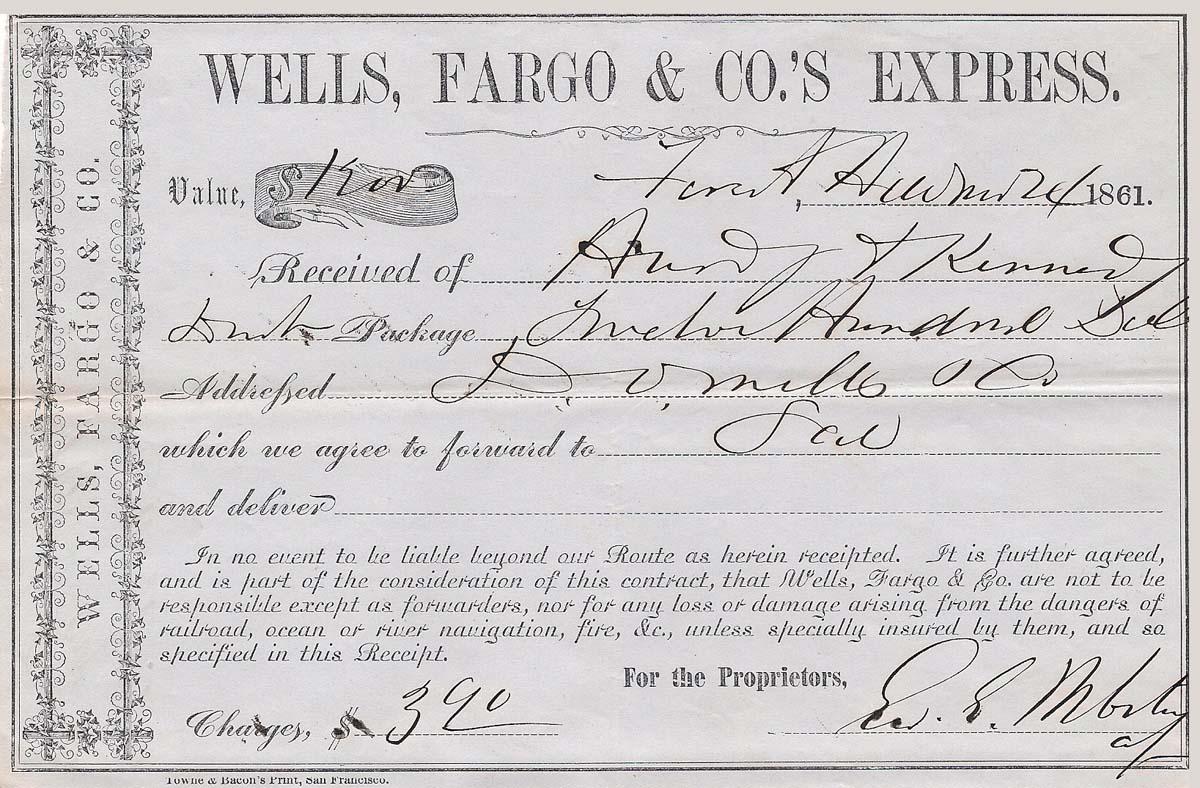 WELLS, FARGO & CO.'S EXPRESS.
WELLS, FARGO & CO.
Value, $ 1200
Forest Hill Nov 24 1861.
Received of Hardy & Kennedy
Dust Package Twelve Hundred Dols
Addressed D. O. Mills & Co
which we agree to forward to Sac
and deliver
In no event to be liable beyond our Route as herein receipted. It is further agreed,
and is part of the consideration of this contract, that Wells, Fargo & Co. are not to be
responsible except as forwarders, nor for any loss or damage arising from the dangers of
railroad, ocean or river navigation, fire, &c., unless specially insured by them, and so
specified in this Receipt.
For the Proprietors,
Charges, $ 3 90
Towne & Bacon's Print, San Francisco.